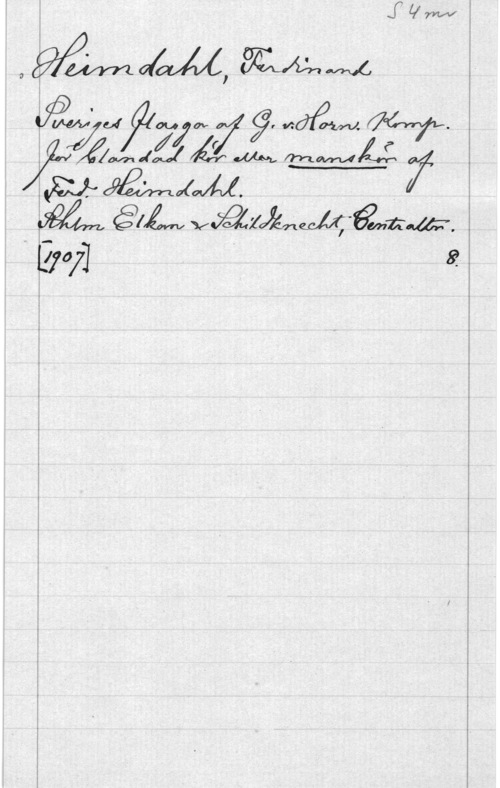 S 4 mv
Heimdahl, Ferdinand
Sveriges flagga af G. v. Horn. Komp.
för blandad kör eller manskör af
Ferd. Heimdahl.
Sthlm Elkan & Schildknecht, Centraltr.
[1907] 8.